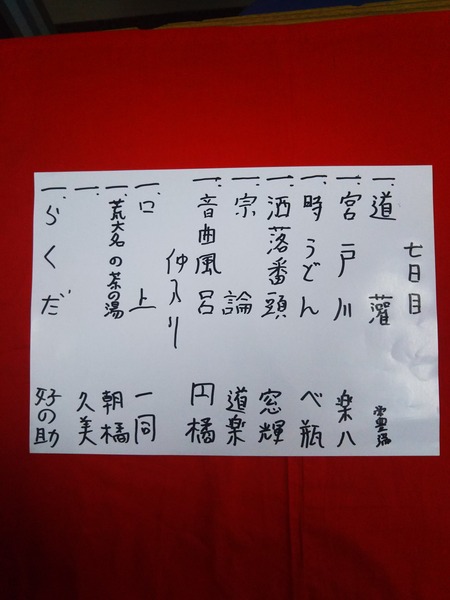 七日目
一、道灌
一、宮戸川 楽八
一、時うどん べ瓶
一、洒落番頭 窓輝
一、宗論 道楽
一、音曲風呂 円橘
仲入り
一、口上 一同
一、荒大名の茶の湯 朝橘
一、 久美
一、らくだ 好の助